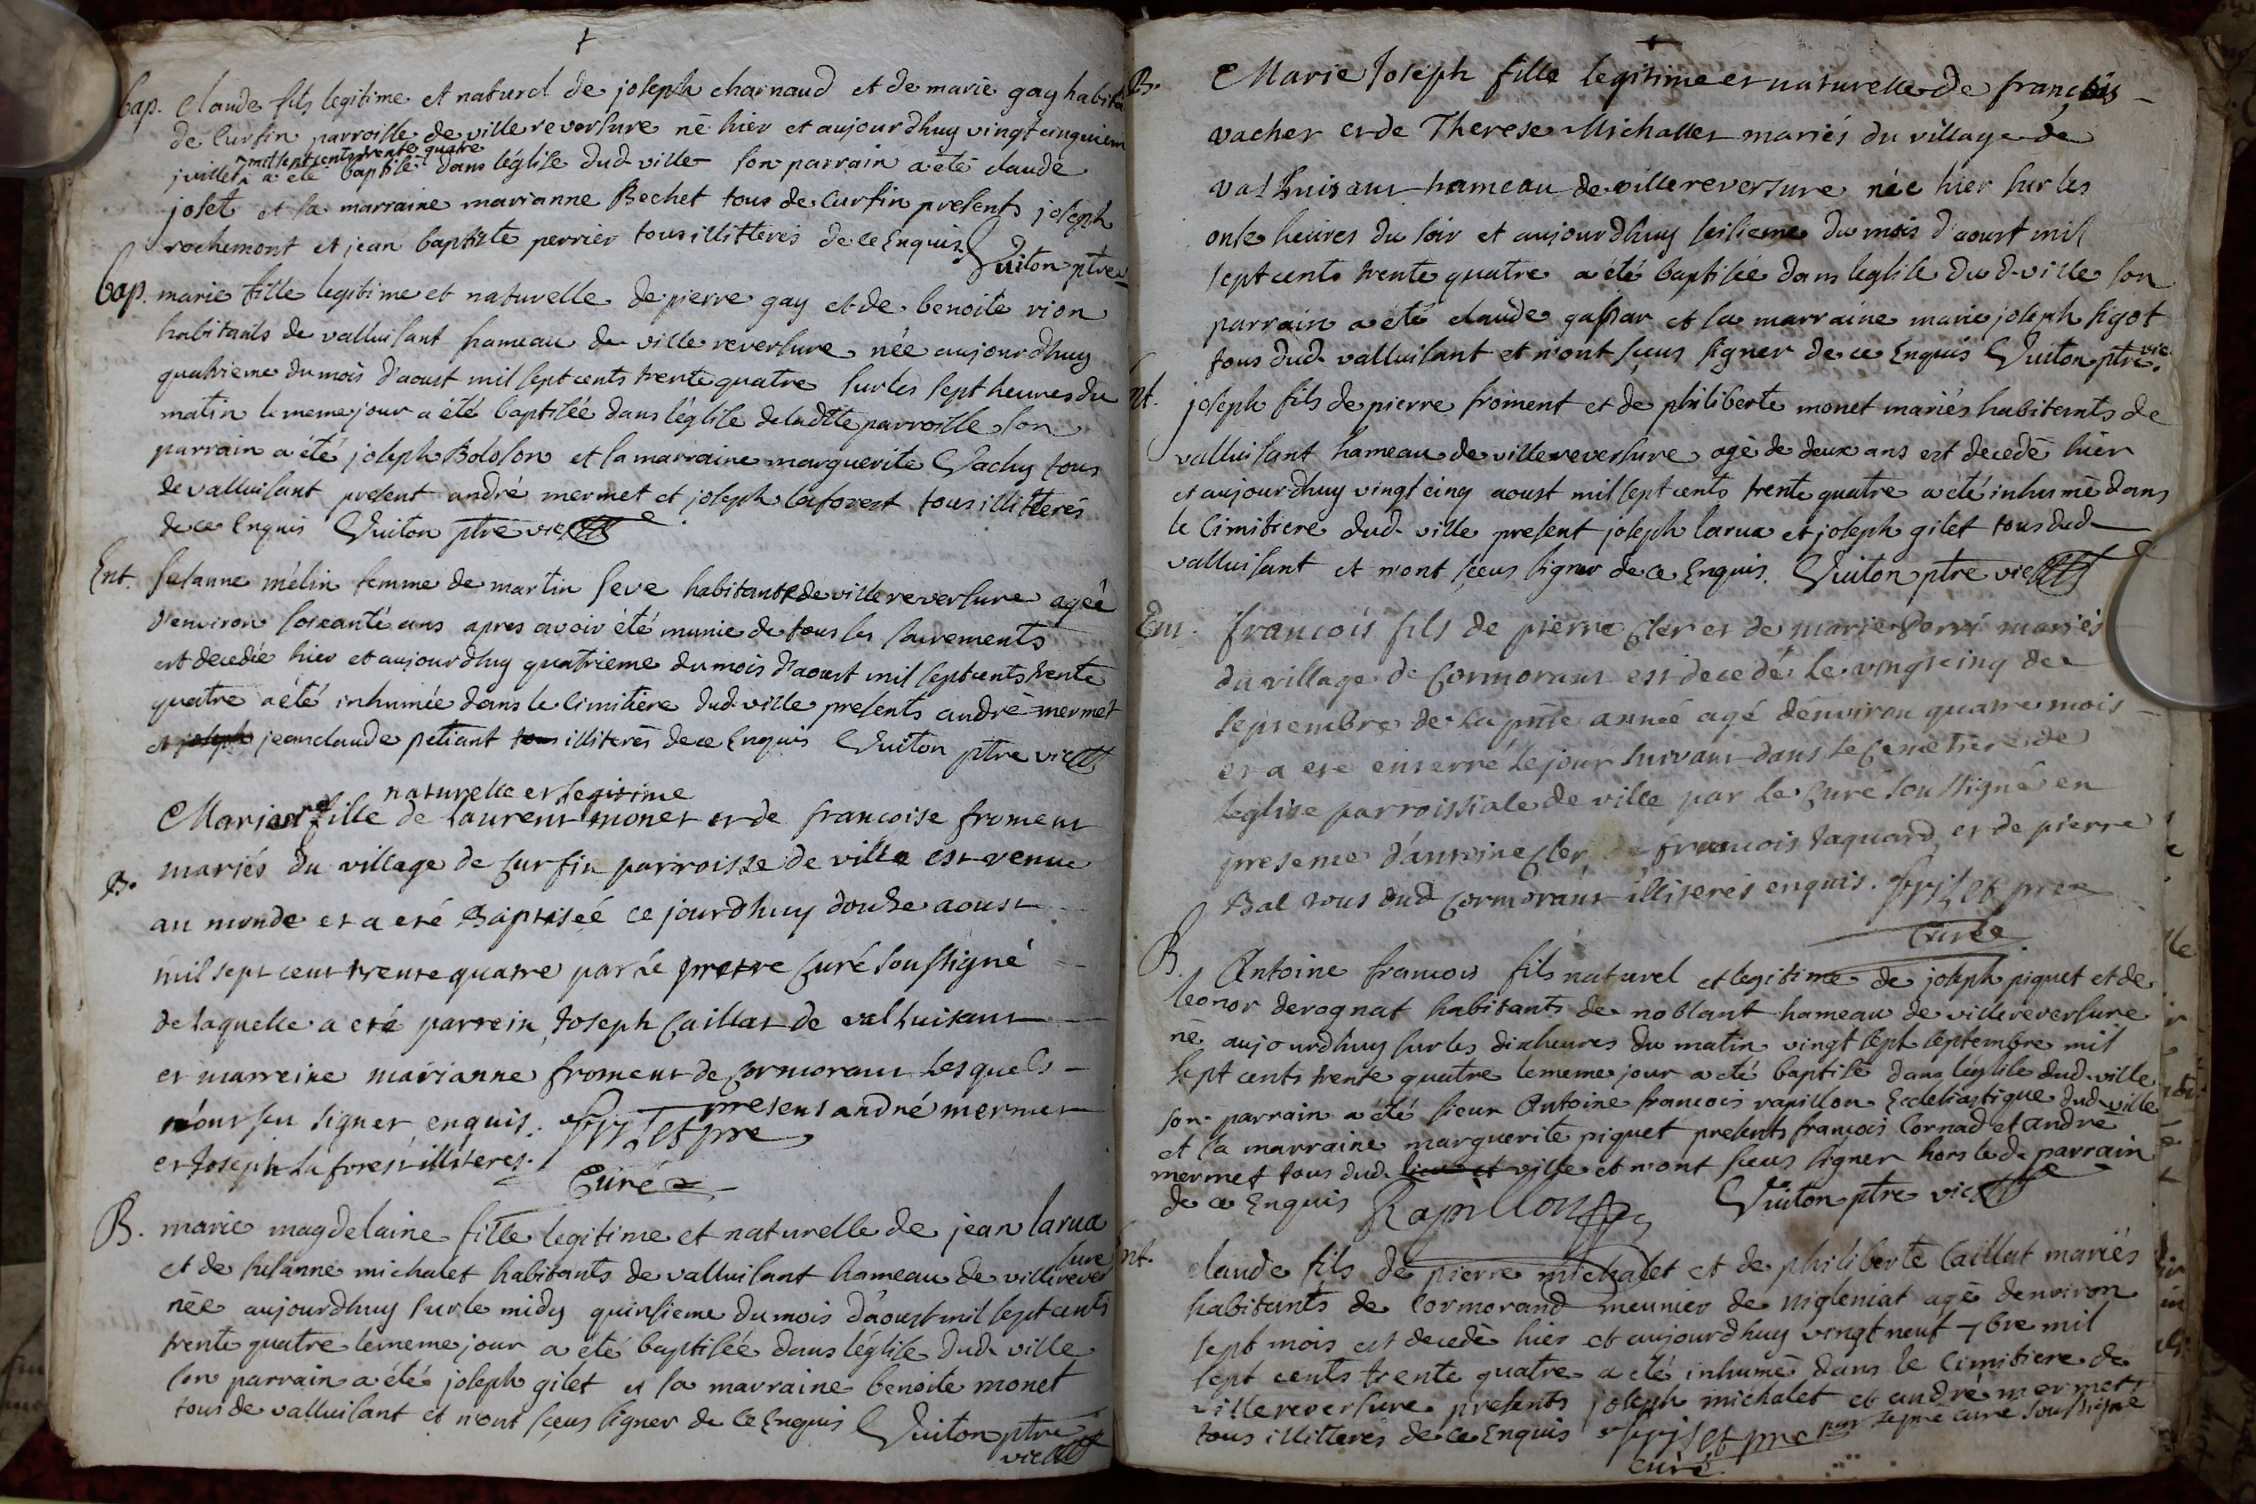 bap. Claude fils legitime et naturel de joseph charnaud et de marie gay habita
de Curfin parroisse de villereversure né hier et aujourdhuy vingt cinquiem
mil sept cents trente quatre
juillet a été baptisé dans léglise dud ville son parrain a été claude
joset et sa marraine marianne Bechet tous de Curfin presents joseph
rochemont et jean baptiste perrier tous illitteres de ce Enquis Vuiton ptre
bap. marie fille legitime et naturelle de pierre gay et de benoite rion
habitants de valluisant hameau de villereversure née aujourdhuy
quatrieme du mois d'aoust mil sept cents trente quatre sur les sept heures du
matin le meme jour a été baptisée dans léglise de ladte parroisse son
parrain a été joseph Boloson et la marraine marguerite Vachy tous
de valluisant present andré mermet et joseph laforest tous illitterés
de ce Enquis Vuiton ptre vic
Ent. susanne mélin femme de martin seve habitante de villereversure agée
d'environ soixante ans apres avoir été munie de tous les sacrements
est decedée hier et aujourdhuy quatrieme du mois d'aoust mil sept cents trente
quatre a été inhumée dans le Cimitière dud ville presents andré mermet
et joseph jeanclaude petiant tous illiterés de ce Enquis Vuiton ptre vic
naturelle et legitime
Marian fille de laurent monet et de francoise froment
mariés du village de Curfin parroisse de ville est venue
B. au monde et a eté Baptiseé ce jourdhuy douze aoust
mil sept cent trente quatre par le pretre Curé soussigné
de laquelle a eté parrein Joseph Caillat de valluisant
et marreine marianne froment de Cormorant lesquels
n'ont seu signer enquis. present andré mermet
et Joseph la forest illiteres. pre
Curé
B. marie magdelaine fille legitime et naturelle de jean larua
et de susanne michalet habitants de valluisant hameau de villerever
sure
née aujourdhuy sur le midy quinsieme du mois d'aoust mil sept cents
trente quatre le meme jour a été baptisée dans léglise dud ville
son parrain a été joseph gilet et la marraine benoite monet
tous de valluisant et n'ont sçeus signer de ce Enquis Vuiton ptre
vic
B. Marie Joseph fille legitime et naturelle de françois
vacher et de Therese Michallet mariés du village de
valluisant hameau de villereversure née hier sur les
onse heures du soir et aujourdhuy seisieme du mois d'aoust mil
sept cents trente quatre a été baptisée dans leglise du d ville son
parrain a été claude gaspar et la marraine marie joseph sigot
tous dud valluisant et n'ont sçeus signer de ce Enquis Vuiton ptre vic
nt. joseph fils de pierre froment et de philiberte monet mariés habitants de
valluisant hameau de villereversure agé de deux ans est decedé hier
et aujourdhuy vingt cinq aoust mil sept cents trente quatre a été inhumé dans
le Cimitiere dud ville present joseph larua et joseph gilet tous dud
valluisant et n'ont sçeus signer de ce Enquis. Vuiton ptre vic
francois fils de pierre Cler et de marie mariés
du village de Cormorant est decedé le vingt cinq de
septembre de la pnte anneé agé denviron quatre mois
et a ete enterré le jour suivant dans le Cemetiere de
leglise parroissiale de ville par le Curé soussigné en
presence d'antoine Cler de francois Jaquard et de pierre
Bal tous dud Cormorant illiterés enquis. pre
Curé
B. Antoine francois fils naturel et legitime de joseph piquet et de
leonor derognat habitants de noblant hameau de villereversure
né aujourdhuy sur les dix heures du matin vingt sept septembre mil
sept cents trente quatre le meme jour a été baptisé dans léglise dud ville
son parrain a été sieur Antoine francois rapillon Ecclesiastique dud ville
et la marraine marguerite piquet presents francois Cornad et andre
mermet tous dud ville et n'ont sçeus signer hors led parrain
de ce Enquis Rapillon Vuiton ptre vic
nt. claude fils de pierre michalet et de philiberte Caillat mariés
habitants de Cormorand meunier de nigleniat agé denviron
sept mois est decedé hier et aujourdhuy vingt neuf 7bre mil
sept cents trente quatre a été inhumé dans le Cimitiere de
villereversure presents joseph michalet et andré mermet
par le pre curé soussigné
tous illitterés de ce Enquis pre
curé